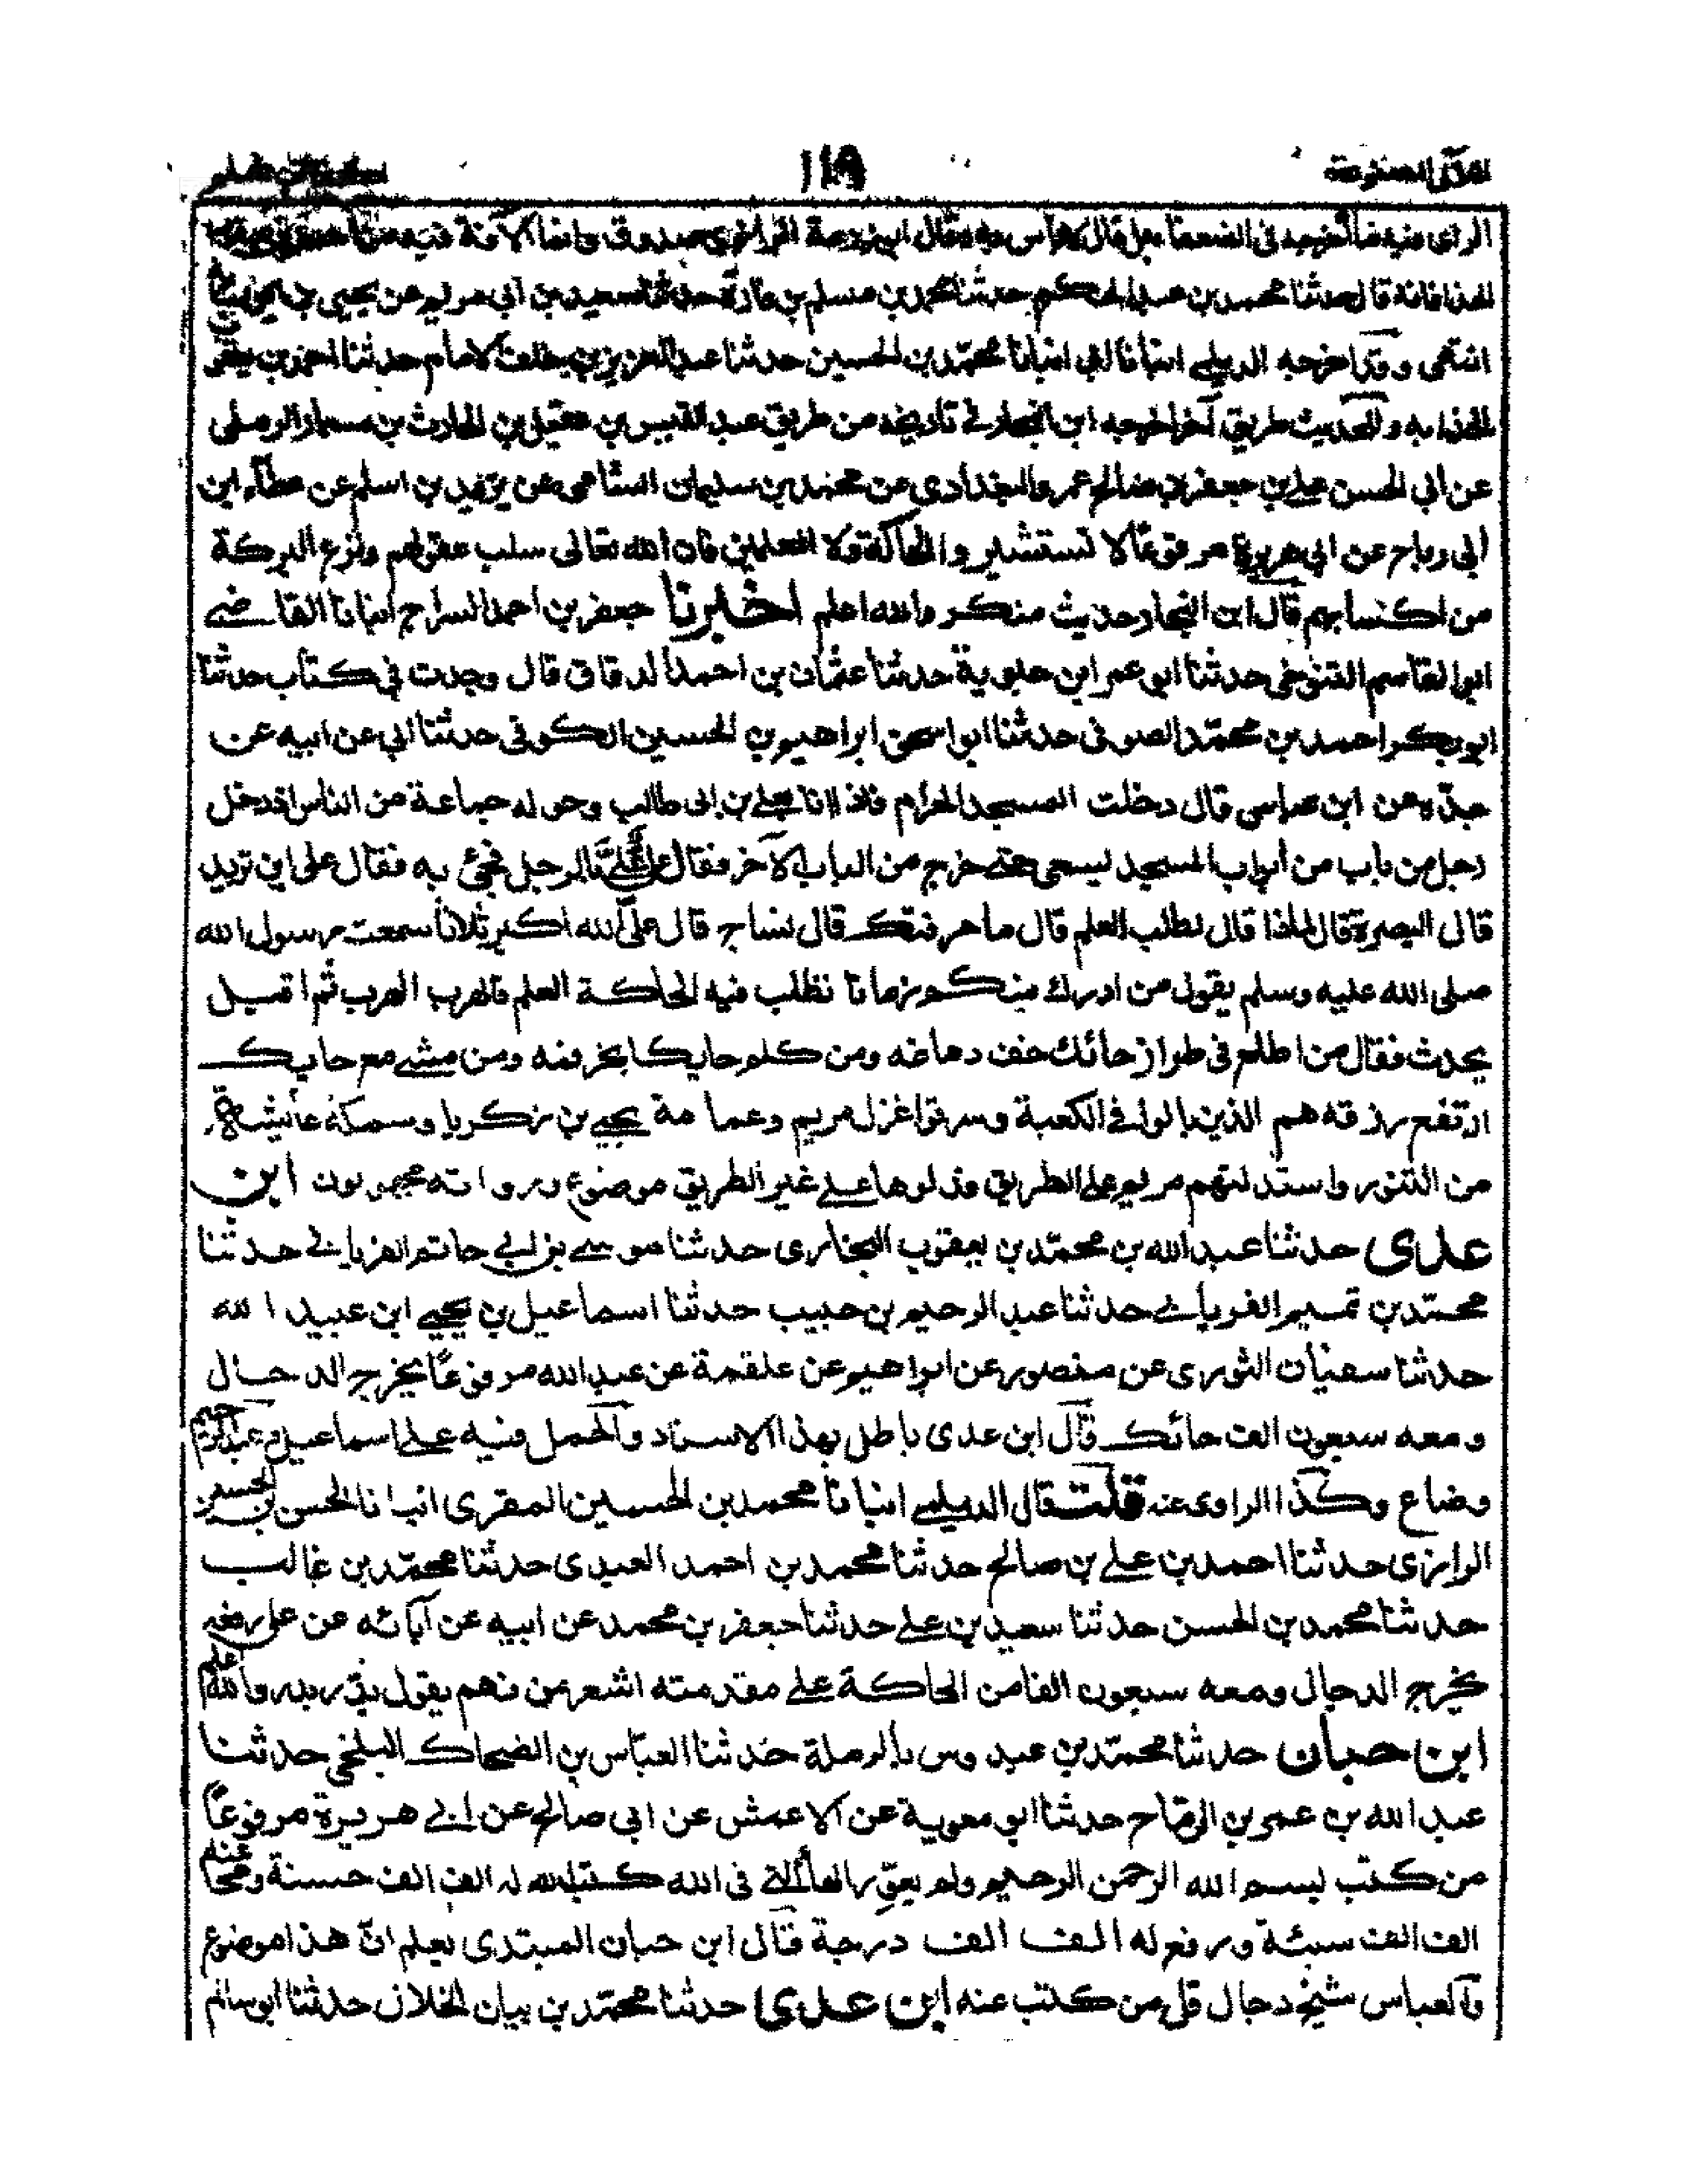 اللآلى المصنوعة ١١٩ كتاب العلم
الراى منه فما اخرجه فى الضعفا بل قال لا باس به وقال ابو زرعة الرازى صدوق وانما الآفة فيه من احمد بن يحيى
الحذا فانه قال حدثنا محمد بن عبد الحكم حدثنا محمد بن مسلم بن وارة حدثنا سعيد بن ابى مريم عن يحيى بن ايوب
انتهى وقد اخرجه الديلمے انبأنا ابى انبأنا محمد بن الحسين حدثنا عبد العزيز بن خلف الامام حدثنا احمد بن يحيى
الحذا به وللحديث طريق آخر اخرجه ابن النجار فے تاريخه من طريق عبد القيس بن معقل بن الحارث بن مسمار الرملى
عن ابى الحسن علے بن جعفر بن صالح عمر والبغدادى عن محمد بن سليمان الشامى عن يزيد بن اسلم عن عطاء ابن
ابى رباح عن ابى هريرة مرفوعًا لا تستشيروا الحاكة ولا المعلمين فان الله تعالى سلب عقولهم ونزع البركة
من اكسابهم قال ابن النجار حديث منكر والله اعلم اخبرنا جعفر بن احمد السراج انبانا القاضے
ابو القاسم التنوخى حدثنا ابو عمر ابن حيوية حدثنا عثمان بن احمد الدقاق قال وجدت فى كتاب حدثنا
ابو بكر احمد بن محمد الصوفى حدثنا ابو اسحق ابراهيم بن الحسين الكوفى حدثنا ابى عن ابيه عن
جدّه عن ابن عباس قال دخلت المسجد الحرام فاذا انا بعلے بن ابى طالب وحوله جماعة من الناس اذ دخل
رجل من باب من ابواب المسجد ليسعى حتے خرج من الباب الآخر فقال علىّ علىّ بالرجل فجئ به فقال على اين تريد
قال البصرة قال لماذا قال نطلب العلم قال ما حرفتك قال نساج قال علىّ الله اكبر ثلاثا سمعت رسول الله
صلى الله عليه وسلم يقول من ادرك منكم زمانا تطلب فيه الحاكة العلم فالهرب الهرب ثم اقبل
يحدث فقال من اطلع فى طراز حائك خف دماغه ومن كلم حايكا بخر فمه ومن مشے مع حايك
ارتفع رزقه هم الذين بالوا فے الكعبة وسرقوا غزل مريم وعمامة يحيے بن زكريا وسمكة عائشة
من التنور واستدلتهم مريم على الطريق فدلوها علے غير الطريق موضوع ورواته مجهولون ابن
عدى حدثنا عبد الله بن محمّد بن يعقوب البخارى حدثنا موسے بن ابے حاتم الفريابے حدثنا
محمّد بن تميم الفريابے حدثنا عبد الرحيم بن حبيب حدثنا اسماعيل بن يحيے ابن عبيد الله
حدثنا سفيان الثورى عن منصور عن ابراهيم عن علقمة عن عبد الله مرفوعًا يخرج الدجال
ومعه سبعون الف حائك قال ابن عدى باطل بهذا الاسناد والحمل فيه علے اسماعيل وعبد الرحيم
وضاع وكذا الراوى عنه قلت قال الديلمے انبانا محمد بن الحسين المقرى انبانا الحسن بن الحسين
الرازى حدثنا احمد بن علے بن صالح حدثنا محمد بن احمد العبدى حدثنا محمّد بن غالب
حدثنا محمد بن الحسن حدثنا سعيد بن علے حدثنا جعفر بن محمد عن ابيه عن آبائه عن على رفعه
يخرج الدجال ومعه سبعون الفا من الحاكة علے مقدمته اشعر من فهم يقول والله اعلم
ابن حبان حدثنا محمّد بن عبدوس بالرملة حدثنا العبّاس بن الضحاك البلخى حدثنا
عبد الله بن عمر بن الرمّاح حدثنا ابو معوية عن الاعمش عن ابى صالح عن ابے هريرة مرفوعًا
من كتب بسم الله الرحمن الرحيم ولم يعوّر الهاء التے فى الله كتب الله له الف الف حسنة ومحا عنه
الف الف سيئة ورفع له الف الف درجة قال ابن حبان المبتدى يعلم انّ هذا موضوع
والعباس شيخ دجال قل من كتب عنه ابن عدى حدثنا محمّد بن بيان الخلال حدثنا ابو سالم